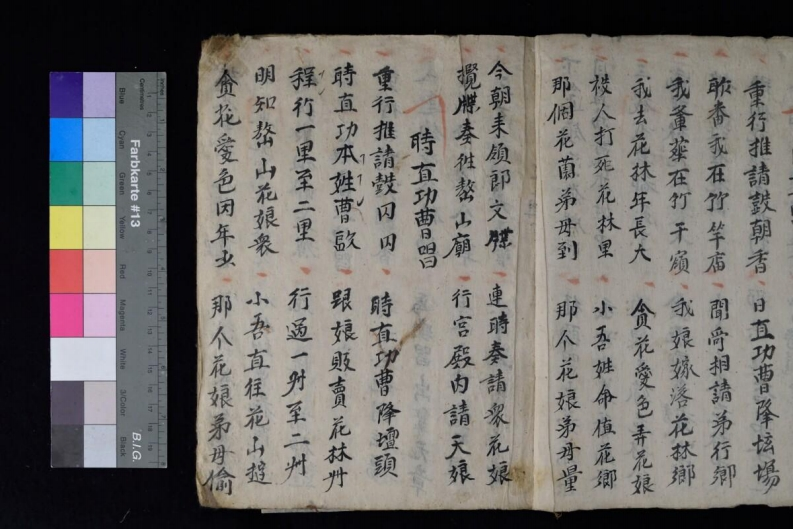 重行推請鼓朝香 日直功曹降坛場
昨番我在竹竿店 聞旹相請弟行鄉
我爹葬在竹千嶺 我娘嫁落花林鄉
我去花林年長大 貪花愛色弄花娘
被人打死花林里 小吾姓命值花鄉
那個花蘭弟母到 那个花娘弟母量
今朝来領郎文牒 連時奏請衆花娘
攪牒奏徃嶅山廟 行宫殿内請天娘
時直功曹唱
重行推請鼓闪闪 時直功曹降壇頭
時直功本姓曹 跟娘販賣花林州
程行一里至二里 行過一州至二州
明知嶅山花娘衆 小吾直徃花山遊
貪花愛色因年少 那个花娘弟母偷
Farbkarte #13
B.I.G.
Centimetres
Inches
Blue
Cyan
Green
Yellow
Red
Magenta
White
3/Color
Black